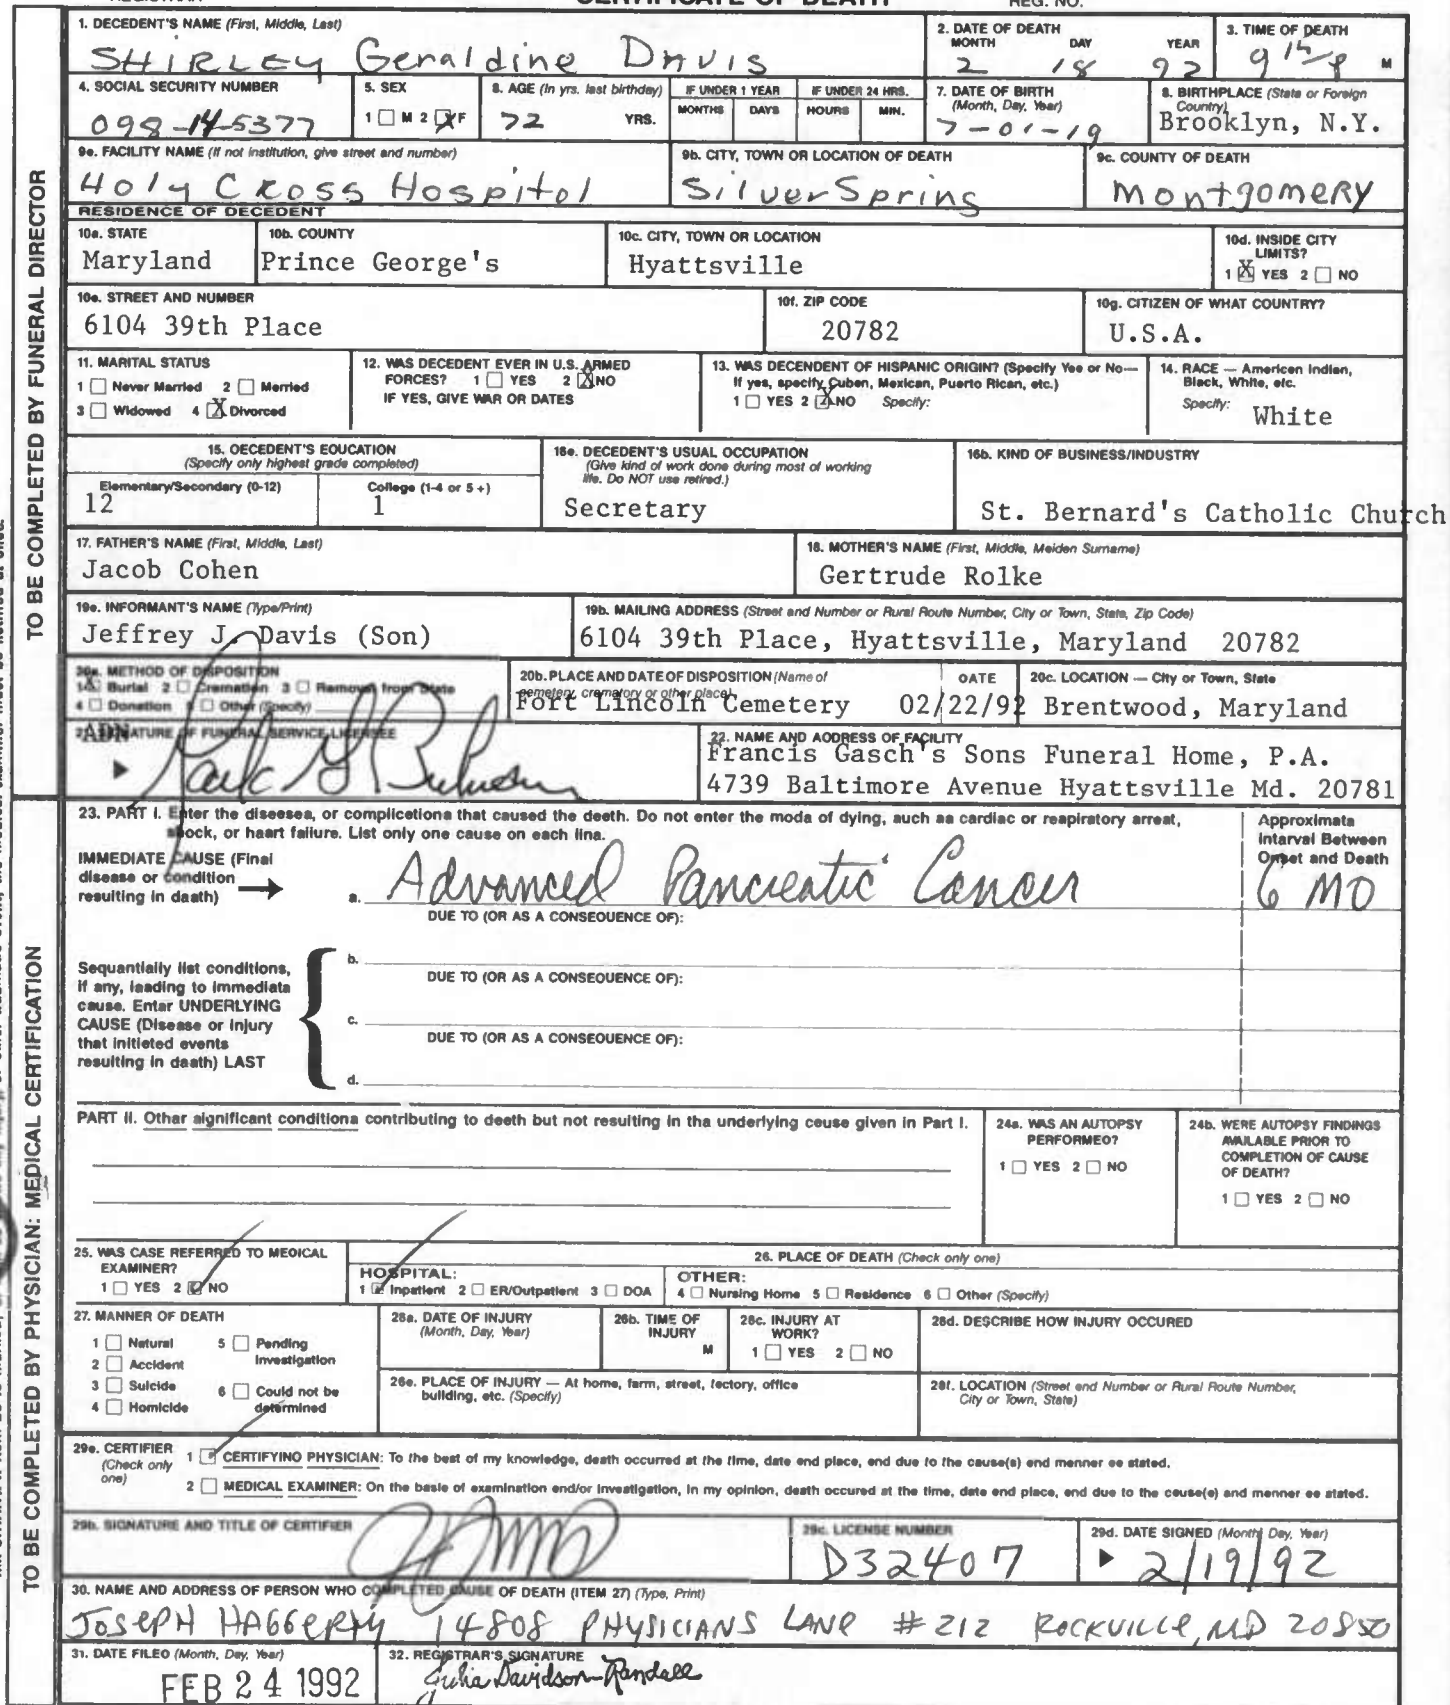 CERTIFICATE OF DEATH REG. NO.
1. DECEDENT'S NAME (First, Middle, Last)
SHIRLEY Geraldine DAVIS
2. DATE OF DEATH
MONTH DAY YEAR
2 18 92
3. TIME OF DEATH
M
4. SOCIAL SECURITY NUMBER
098-14-5377
5. SEX
1 M 2 X F
6. AGE (In yrs. last birthday)
72 YRS.
IF UNDER 1 YEAR
MONTHS DAYS
IF UNDER 24 HRS.
HOURS MIN.
7. DATE OF BIRTH
(Month, Day, Year)
7-01-19
8. BIRTHPLACE (State or Foreign
Country)
Brooklyn, N.Y.
9a. FACILITY NAME (If not institution, give street and number)
Holy Cross Hospitol
9b. CITY, TOWN OR LOCATION OF DEATH
Silver Spring
9c. COUNTY OF DEATH
Montgomery
RESIDENCE OF DECEDENT
10a. STATE
Maryland
10b. COUNTY
Prince George's
10c. CITY, TOWN OR LOCATION
Hyattsville
10d. INSIDE CITY
LIMITS?
1 X YES 2 NO
10e. STREET AND NUMBER
6104 39th Place
10f. ZIP CODE
20782
10g. CITIZEN OF WHAT COUNTRY?
U.S.A.
11. MARITAL STATUS
1 Never Married 2 Married
3 Widowed 4 X Divorced
12. WAS DECEDENT EVER IN U.S. ARMED
FORCES? 1 YES 2 X NO
IF YES, GIVE WAR OR DATES
13. WAS DECENDENT OF HISPANIC ORIGIN? (Specify Yes or No—
If yes, specify Cuban, Mexican, Puerto Rican, etc.)
1 YES 2 X NO Specify:
14. RACE — American Indian,
Black, White, etc.
Specify: White
15. DECEDENT'S EDUCATION
(Specify only highest grade completed)
Elementary/Secondary (0-12) College (1-4 or 5+)
12 1
16a. DECEDENT'S USUAL OCCUPATION
(Give kind of work done during most of working
life. Do NOT use retired.)
Secretary
16b. KIND OF BUSINESS/INDUSTRY
St. Bernard's Catholic Church
17. FATHER'S NAME (First, Middle, Last)
Jacob Cohen
18. MOTHER'S NAME (First, Middle, Maiden Surname)
Gertrude Rolke
19a. INFORMANT'S NAME (Type/Print)
Jeffrey J. Davis (Son)
19b. MAILING ADDRESS (Street and Number or Rural Route Number, City or Town, State, Zip Code)
6104 39th Place, Hyattsville, Maryland 20782
20a. METHOD OF DISPOSITION
1 X Burial 2 Cremation 3 Removal from State
4 Donation 5 Other (Specify)
20b. PLACE AND DATE OF DISPOSITION (Name of
cemetery, crematory or other place) DATE
Fort Lincoln Cemetery 02/22/92
20c. LOCATION — City or Town, State
Brentwood, Maryland
21. SIGNATURE OF FUNERAL SERVICE LICENSEE
ADN
22. NAME AND ADDRESS OF FACILITY
Francis Gasch's Sons Funeral Home, P.A.
4739 Baltimore Avenue Hyattsville Md. 20781
TO BE COMPLETED BY FUNERAL DIRECTOR
23. PART I. Enter the diseases, or complications that caused the death. Do not enter the mode of dying, such as cardiac or respiratory arrest,
shock, or heart failure. List only one cause on each line.
Approximate
Interval Between
Onset and Death
IMMEDIATE CAUSE (Final
disease or condition
resulting in death)
a. Advanced Pancreatic Cancer 6 MO
DUE TO (OR AS A CONSEQUENCE OF):
Sequentially list conditions,
if any, leading to immediate
cause. Enter UNDERLYING
CAUSE (Disease or injury
that initieted events
resulting in death) LAST
b.
DUE TO (OR AS A CONSEQUENCE OF):
c.
DUE TO (OR AS A CONSEQUENCE OF):
d.
PART II. Other significant conditions contributing to death but not resulting in the underlying cause given in Part I.
24a. WAS AN AUTOPSY
PERFORMED?
1 YES 2 NO
24b. WERE AUTOPSY FINDINGS
AVAILABLE PRIOR TO
COMPLETION OF CAUSE
OF DEATH?
1 YES 2 NO
25. WAS CASE REFERRED TO MEDICAL
EXAMINER?
1 YES 2 NO
26. PLACE OF DEATH (Check only one)
HOSPITAL:
1 Inpatient 2 ER/Outpatient 3 DOA
OTHER:
4 Nursing Home 5 Residence 6 Other (Specify)
27. MANNER OF DEATH
1 Natural 5 Pending
Investigation
2 Accident
3 Suicide 6 Could not be
determined
4 Homicide
28a. DATE OF INJURY
(Month, Day, Year)
28b. TIME OF
INJURY
M
28c. INJURY AT
WORK?
1 YES 2 NO
28d. DESCRIBE HOW INJURY OCCURED
28e. PLACE OF INJURY — At home, farm, street, factory, office
building, etc. (Specify)
28f. LOCATION (Street and Number or Rural Route Number,
City or Town, State)
29a. CERTIFIER
(Check only
one)
1 CERTIFYING PHYSICIAN: To the best of my knowledge, death occurred at the time, date and place, and due to the cause(s) and manner as stated.
2 MEDICAL EXAMINER: On the basis of examination and/or investigation, in my opinion, death occured at the time, date and place, and due to the cause(s) and manner as stated.
29b. SIGNATURE AND TITLE OF CERTIFIER
29c. LICENSE NUMBER
D32407
29d. DATE SIGNED (Month, Day, Year)
2/19/92
30. NAME AND ADDRESS OF PERSON WHO COMPLETED CAUSE OF DEATH (ITEM 27) (Type, Print)
JOSEPH HAGGERTY 14808 PHYSICIANS LANE #212 ROCKVILLE, MD 20850
31. DATE FILED (Month, Day, Year)
FEB 24 1992
32. REGISTRAR'S SIGNATURE
Julia Davidson-Randall
TO BE COMPLETED BY PHYSICIAN: MEDICAL CERTIFICATION